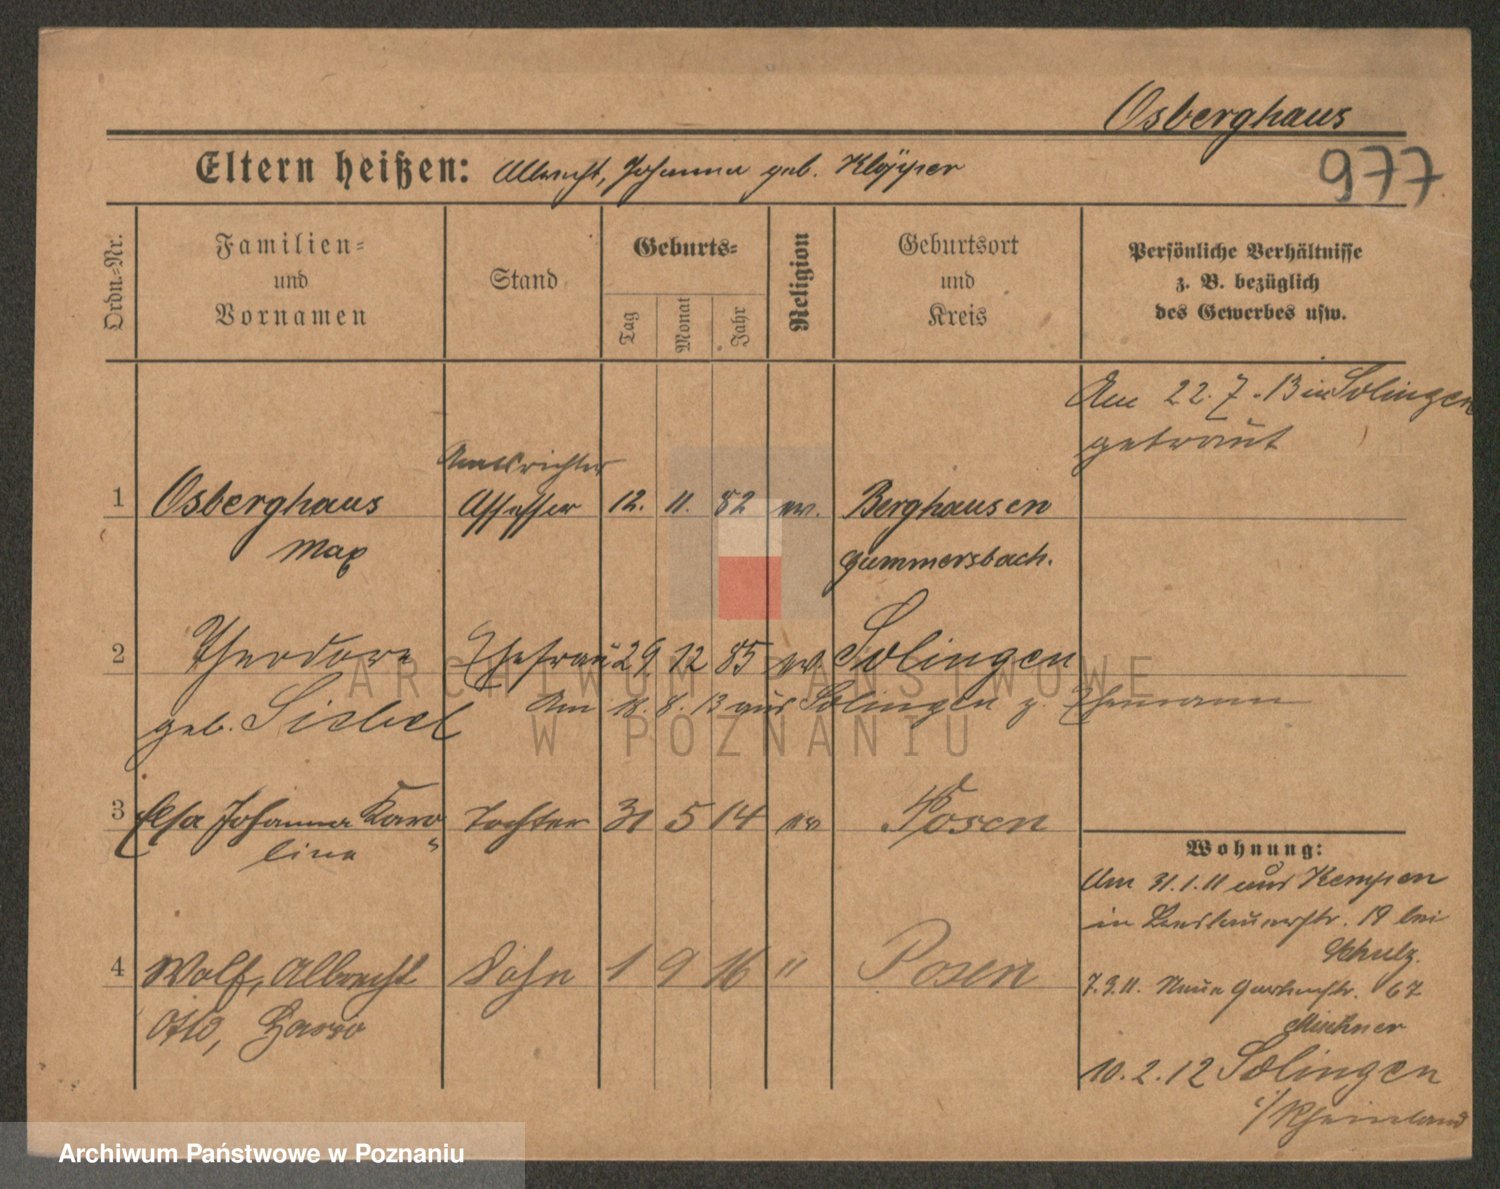 Osberghaus
Eltern heißen: Albrecht, Johanna geb. Klöpper
977
Ordn.=Nr.
Familien=
und
Vornamen
Stand
Geburts=
Tag
Monat
Jahr
Religion
Geburtsort
und
Kreis
Persönliche Verhältnisse
z. B. bezüglich
des Gewerbes usw.
Am 22.7.13 in Solingen
getraut
Amtsrichter
1 Osberghaus Assessor 12. 11. 82 ev. Berghausen
Max Gummersbach.
2 Theodore Ehefrau 29 12 85 ev. Solingen
geb. Siebel Am 18.8.13 aus Solingen z. Ehemann
3 Elsa Johanna Karo Tochter 31 5 14 ev Posen
lina "
4 Wolf, Albrecht Sohn 1 9 16 " Posen
Otto, Hasso
Wohnung:
Am 31.1.11 aus Kempen
in str. 19 bei
Schulz.
7.9.11. Neue Gartenstr. 67
10.2.12 Solingen
i/Rheinland
ARCHIWUM PAŃSTWOWE
W POZNANIU
Archiwum Państwowe w Poznaniu